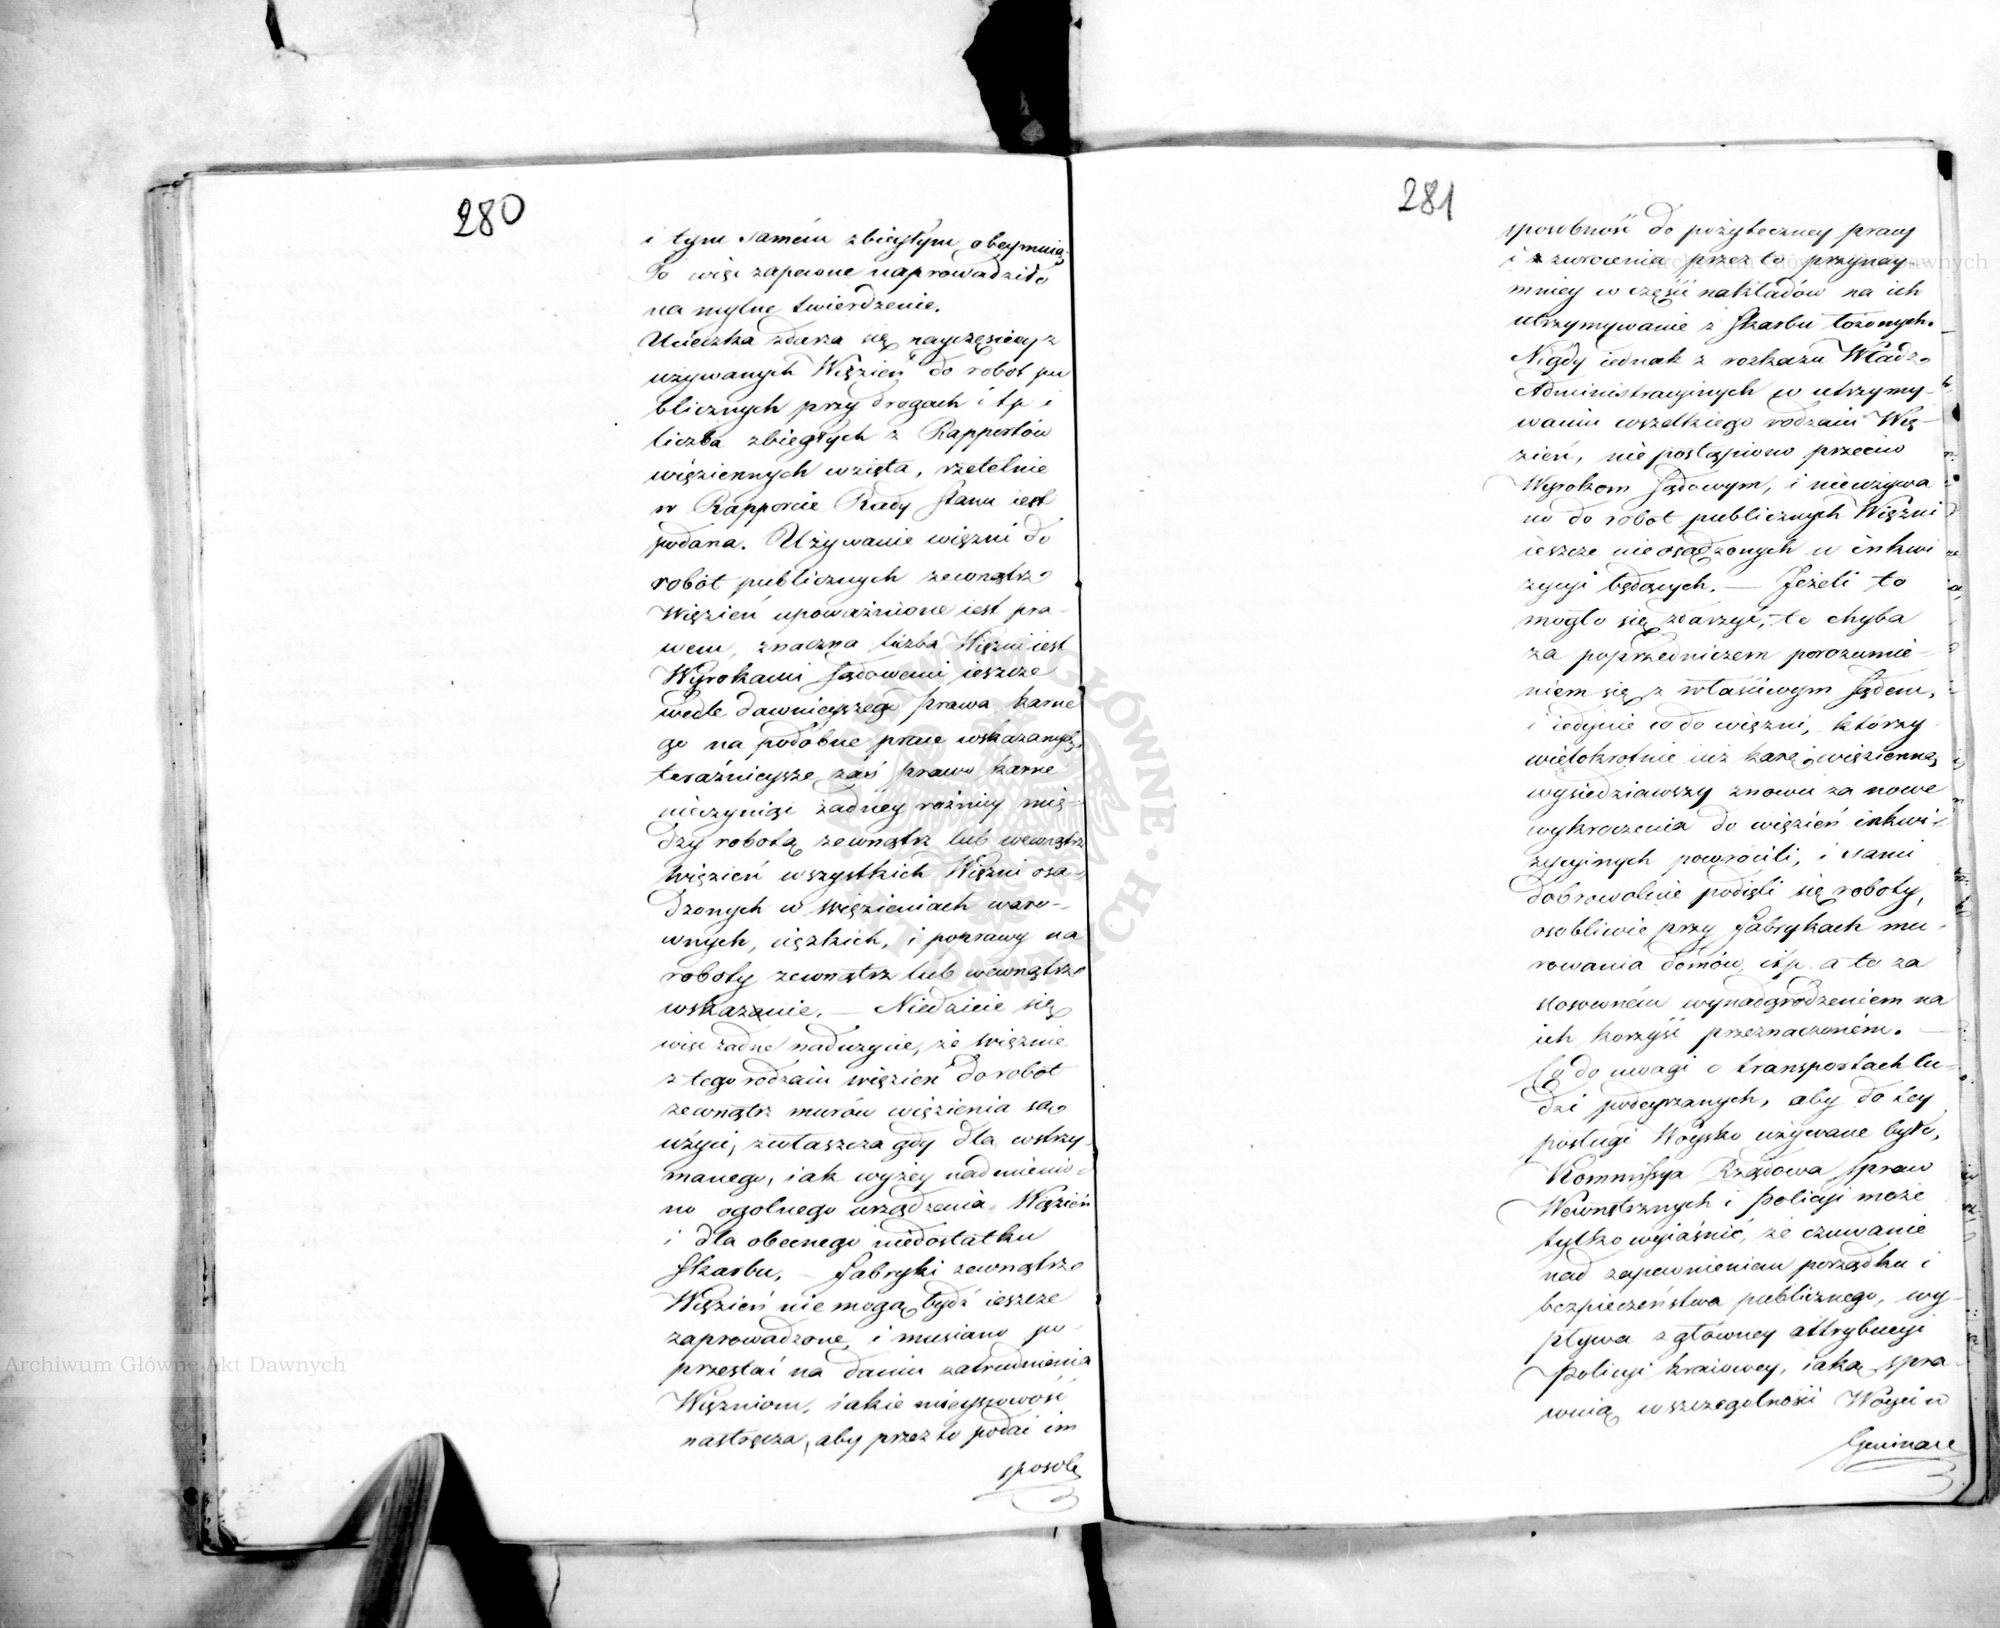 280
i tym samém zbiegłym obeymuią.
To więc zapewne naprowadziło
na mylne twierdzenie.
Ucieczka zdarza się nayczęściey z
używanych Więzień do robot pu
blicznych przy drogach i t.p. i
liczba zbiegłych z Rapportów
więziennych wzięta, rzetelnie
w Rapporcie Rady Stanu iest
podana. Używanie więzni do
robót publicznych zewnątrz
Więzień upoważnione iest pra-
wem, znaczna liczba Więzni iest
Wyrokami Sądowemi ieszcze
wedle dawnieyszego prawa karne
go na podobne prace wskazanych,
teraźnieysze zaś prawo karne
nieczyniąc żadney rożnicy mię-
dzy robotą zewnątrz lub wewnątrz
więzień wszystkich Więzni osa-
dzonych w więzieniach waro-
wnych, ciężkich, i poprawy na
roboty zewnątrz lub wewnątrz
wskazanie. — Niedzieie się
więc żadne nadużycie, że więznie
z tego rodzaiu więzień do robot
zewnątrz murów więzienia są
użyci, zwłaszcza gdy dla wstrzy-
manego, iak wyżey nadmienio-
no ogolnego urządzenia Więzień
i dla obecnego niedostatku
Skarbu, — Fabryki zewnątrz
Więzień nie mogą bydź ieszcze
zaprowadzone, i musiano po-
przestać na daniu zatrudnienia
Więzniom, iakie mieyscowość
nastręcza, aby przez to podać im
sposob
281
sposobność do pożyteczney pracy
i zwrocenia przez to przynay-
mniey w części nakładów na ich
utrzymywanie z Skarbu łożonych.
Nigdy iednak z rozkazu Władz
Administracyinych w utrzymy-
waniu wszelkiego rodzaiu Wię-
zień, nie postąpiono przeciw
Wyrokom Sądowym, i nieużywa
no do robot publicznych Więzni
ieszcze nie osądzonych w inkwi
zycyi będących. — Jeżeli to
mogło się zdarzyć, to chyba
za poprzedniczem porozumie-
niem się z właściwym Sądem,
i iedynie co do więzni, którzy
wielokrotnie iuż karę więzienną
wysiedziawszy znowu za nowe
wykroczenia do więzień inkwi-
zycyinych powrócili, i sami
dobrowolnie podięli się roboty,
osobliwie przy fabrykach mu-
rowania domów, i t.p. a to za
stosowném wynadgrodzeniem na
ich korzyść przeznaczoném. —
Co do uwagi o transportach lu-
dzi podeyrzanych, aby do tey
posługi Woysko używane było,
Kommissya Rządowa Spraw
Wewnętrznych i Policyi może
tylko wyiaśnić, że czuwanie
nad zapewnieniem porządku i
bezpieczeństwa publicznego, wy-
pływa z główney attrybucyi
Policyi kraiowey, iaką spra-
wuią w szczególności Woyci w
Gminach
Archiwum Główne Akt Dawnych
Archiwum Główne Akt Dawnych